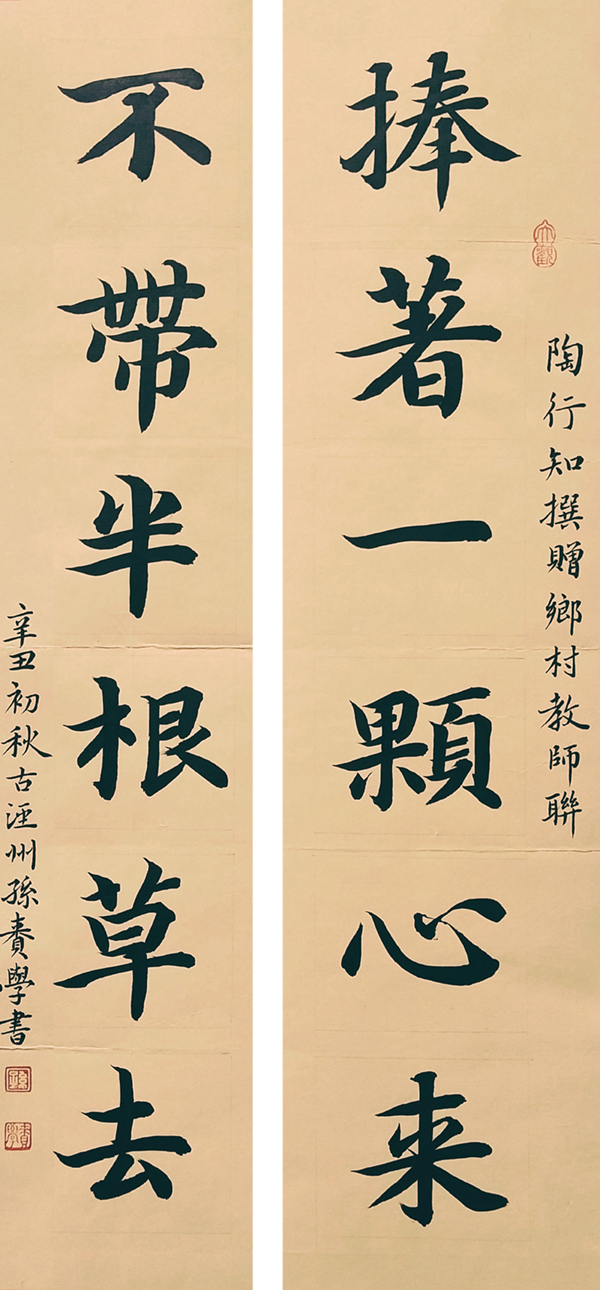 大觀
陶行知撰贈鄉村教師聯
捧著一顆心来
不帶半根草去
辛丑初秋古涇州孫責學書